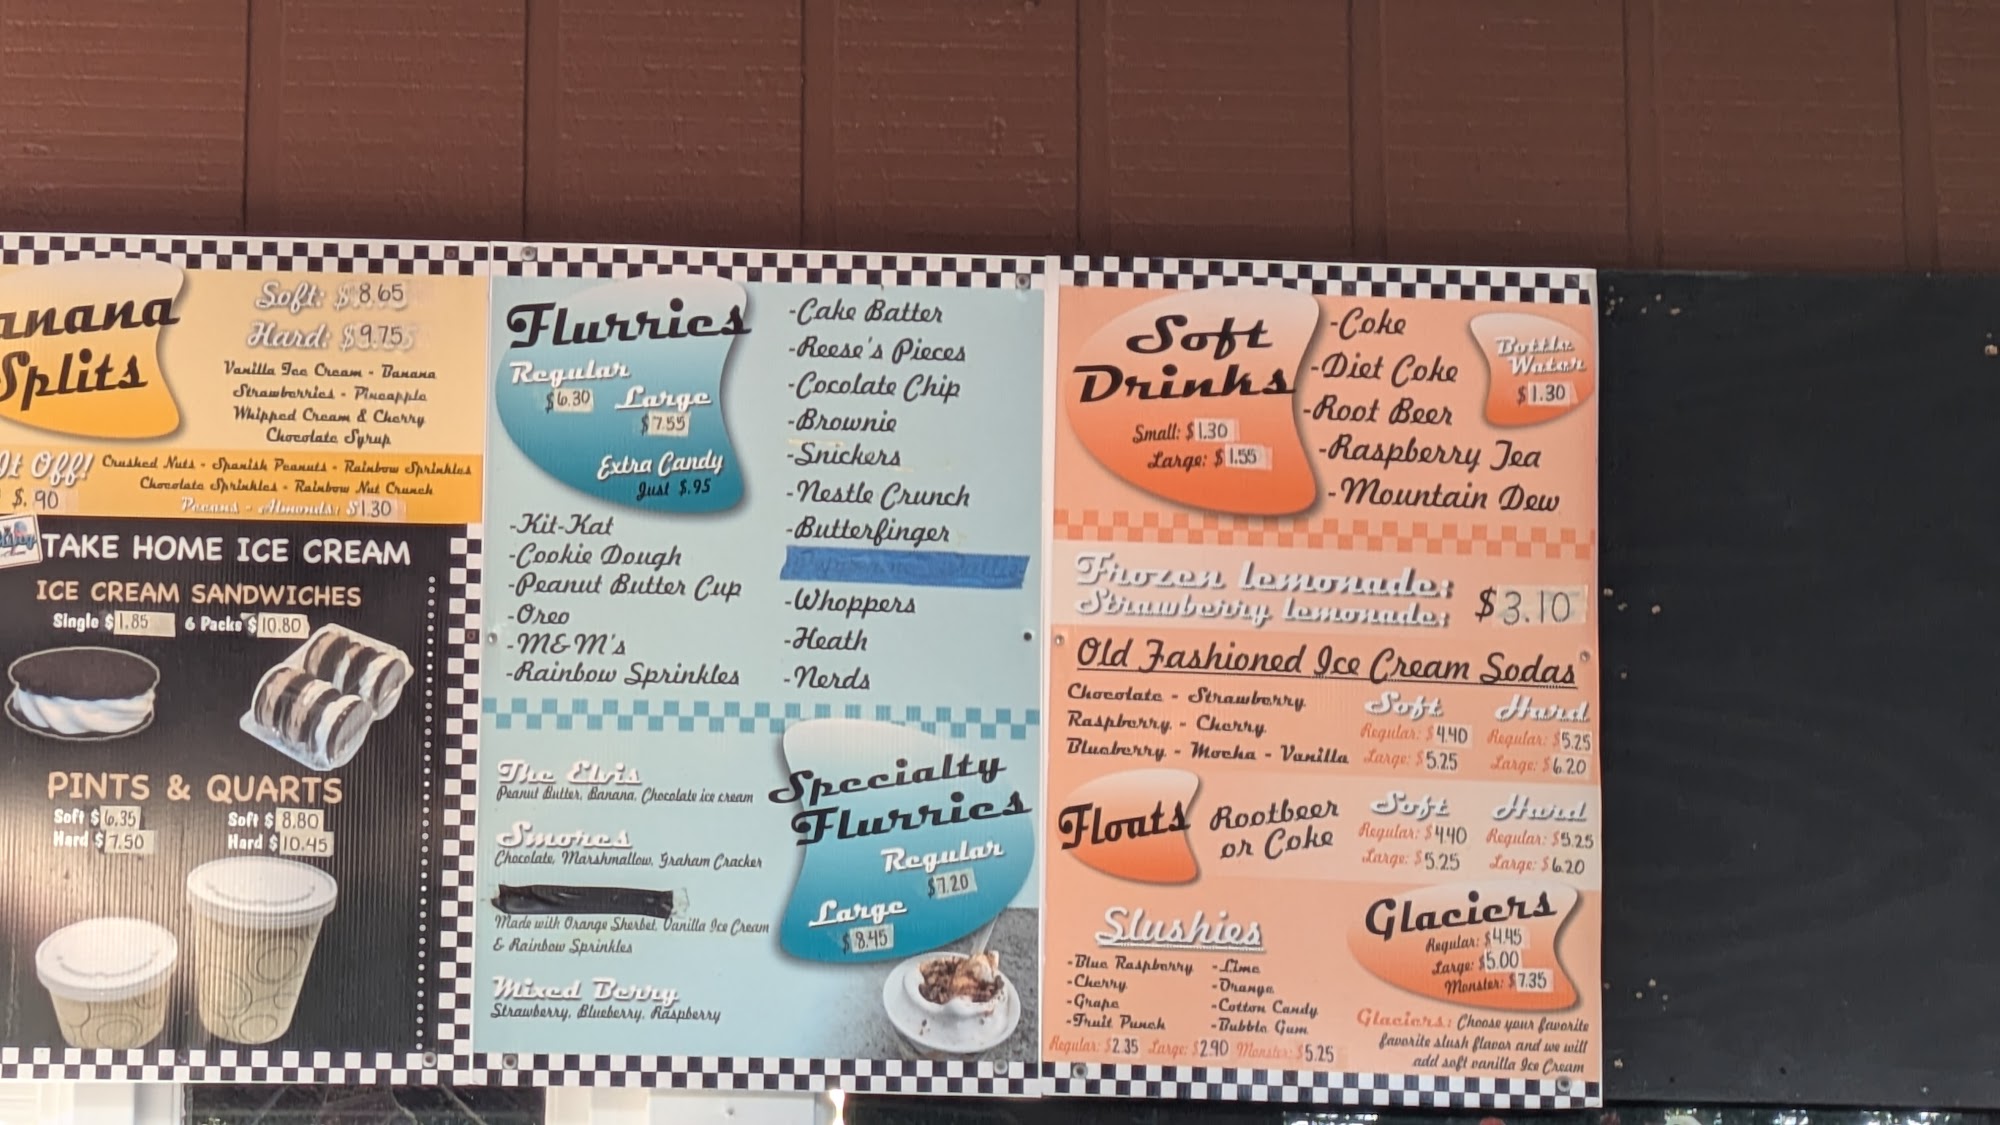 anana
Splits
Soft: $8.65
Hard: $9.75
Vanilla Ice Cream - Banana
Strawberries - Pineapple
Whipped Cream & Cherry
Chocolate Syrup
It Off!
$.90
Crushed Nuts - Spanish Peanuts - Rainbow Sprinkles
Chocolate Sprinkles - Rainbow Nut Crunch
Pecans - Almonds: $1.30
TAKE HOME ICE CREAM
ICE CREAM SANDWICHES
Single $1.85 6 Packs $10.80
PINTS & QUARTS
Soft $6.35
Hard $7.50
Soft $8.80
Hard $10.45
Flurries
Regular
$6.30
Large
$7.55
Extra Candy
Just $.95
-Kit-Kat
-Cookie Dough
-Peanut Butter Cup
-Oreo
-M&M's
-Rainbow Sprinkles
-Cake Batter
-Reese's Pieces
-Cocolate Chip
-Brownie
-Snickers
-Nestle Crunch
-Butterfinger
-Whoppers
-Heath
-Nerds
Specialty
Flurries
Regular
$7.20
Large
$8.45
The Elvis
Peanut Butter, Banana, Chocolate ice cream
Smores
Chocolate, Marshmallow, Graham Cracker
Made with Orange Sherbet, Vanilla Ice Cream
& Rainbow Sprinkles
Mixed Berry
Strawberry, Blueberry, Raspberry
Soft
Drinks
Small: $1.30
Large: $1.55
-Coke
-Diet Coke
-Root Beer
-Raspberry Tea
-Mountain Dew
Bottle
Water
$1.30
Frozen lemonade:
Strawberry lemonade:
$3.10
Old Fashioned Ice Cream Sodas
Chocolate - Strawberry
Raspberry - Cherry
Blueberry - Mocha - Vanilla
Soft
Regular: $4.40
Large: $5.25
Hard
Regular: $5.25
Large: $6.20
Floats
Rootbeer
or Coke
Soft
Regular: $4.40
Large: $5.25
Hard
Regular: $5.25
Large: $6.20
Slushies
-Blue Raspberry
-Cherry
-Grape
-Fruit Punch
-Lime
-Orange
-Cotton Candy
-Bubble Gum
Regular: $2.35 Large: $2.90 Monster: $5.25
Glaciers
Regular: $4.45
Large: $5.00
Monster: $7.35
Glaciers: Choose your favorite
favorite slush flavor and we will
add soft vanilla Ice Cream